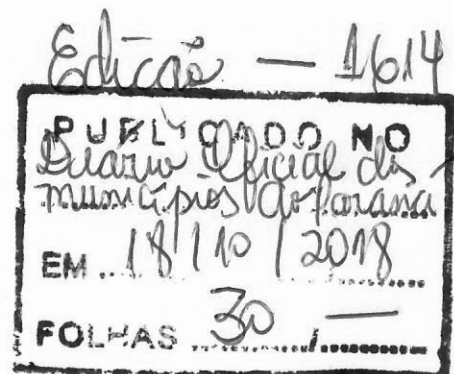 Edição — 1614
PUBLICADO NO
Diário Oficial dos
municípios do Paraná
EM 18/10/2018
FOLHAS 30 / —